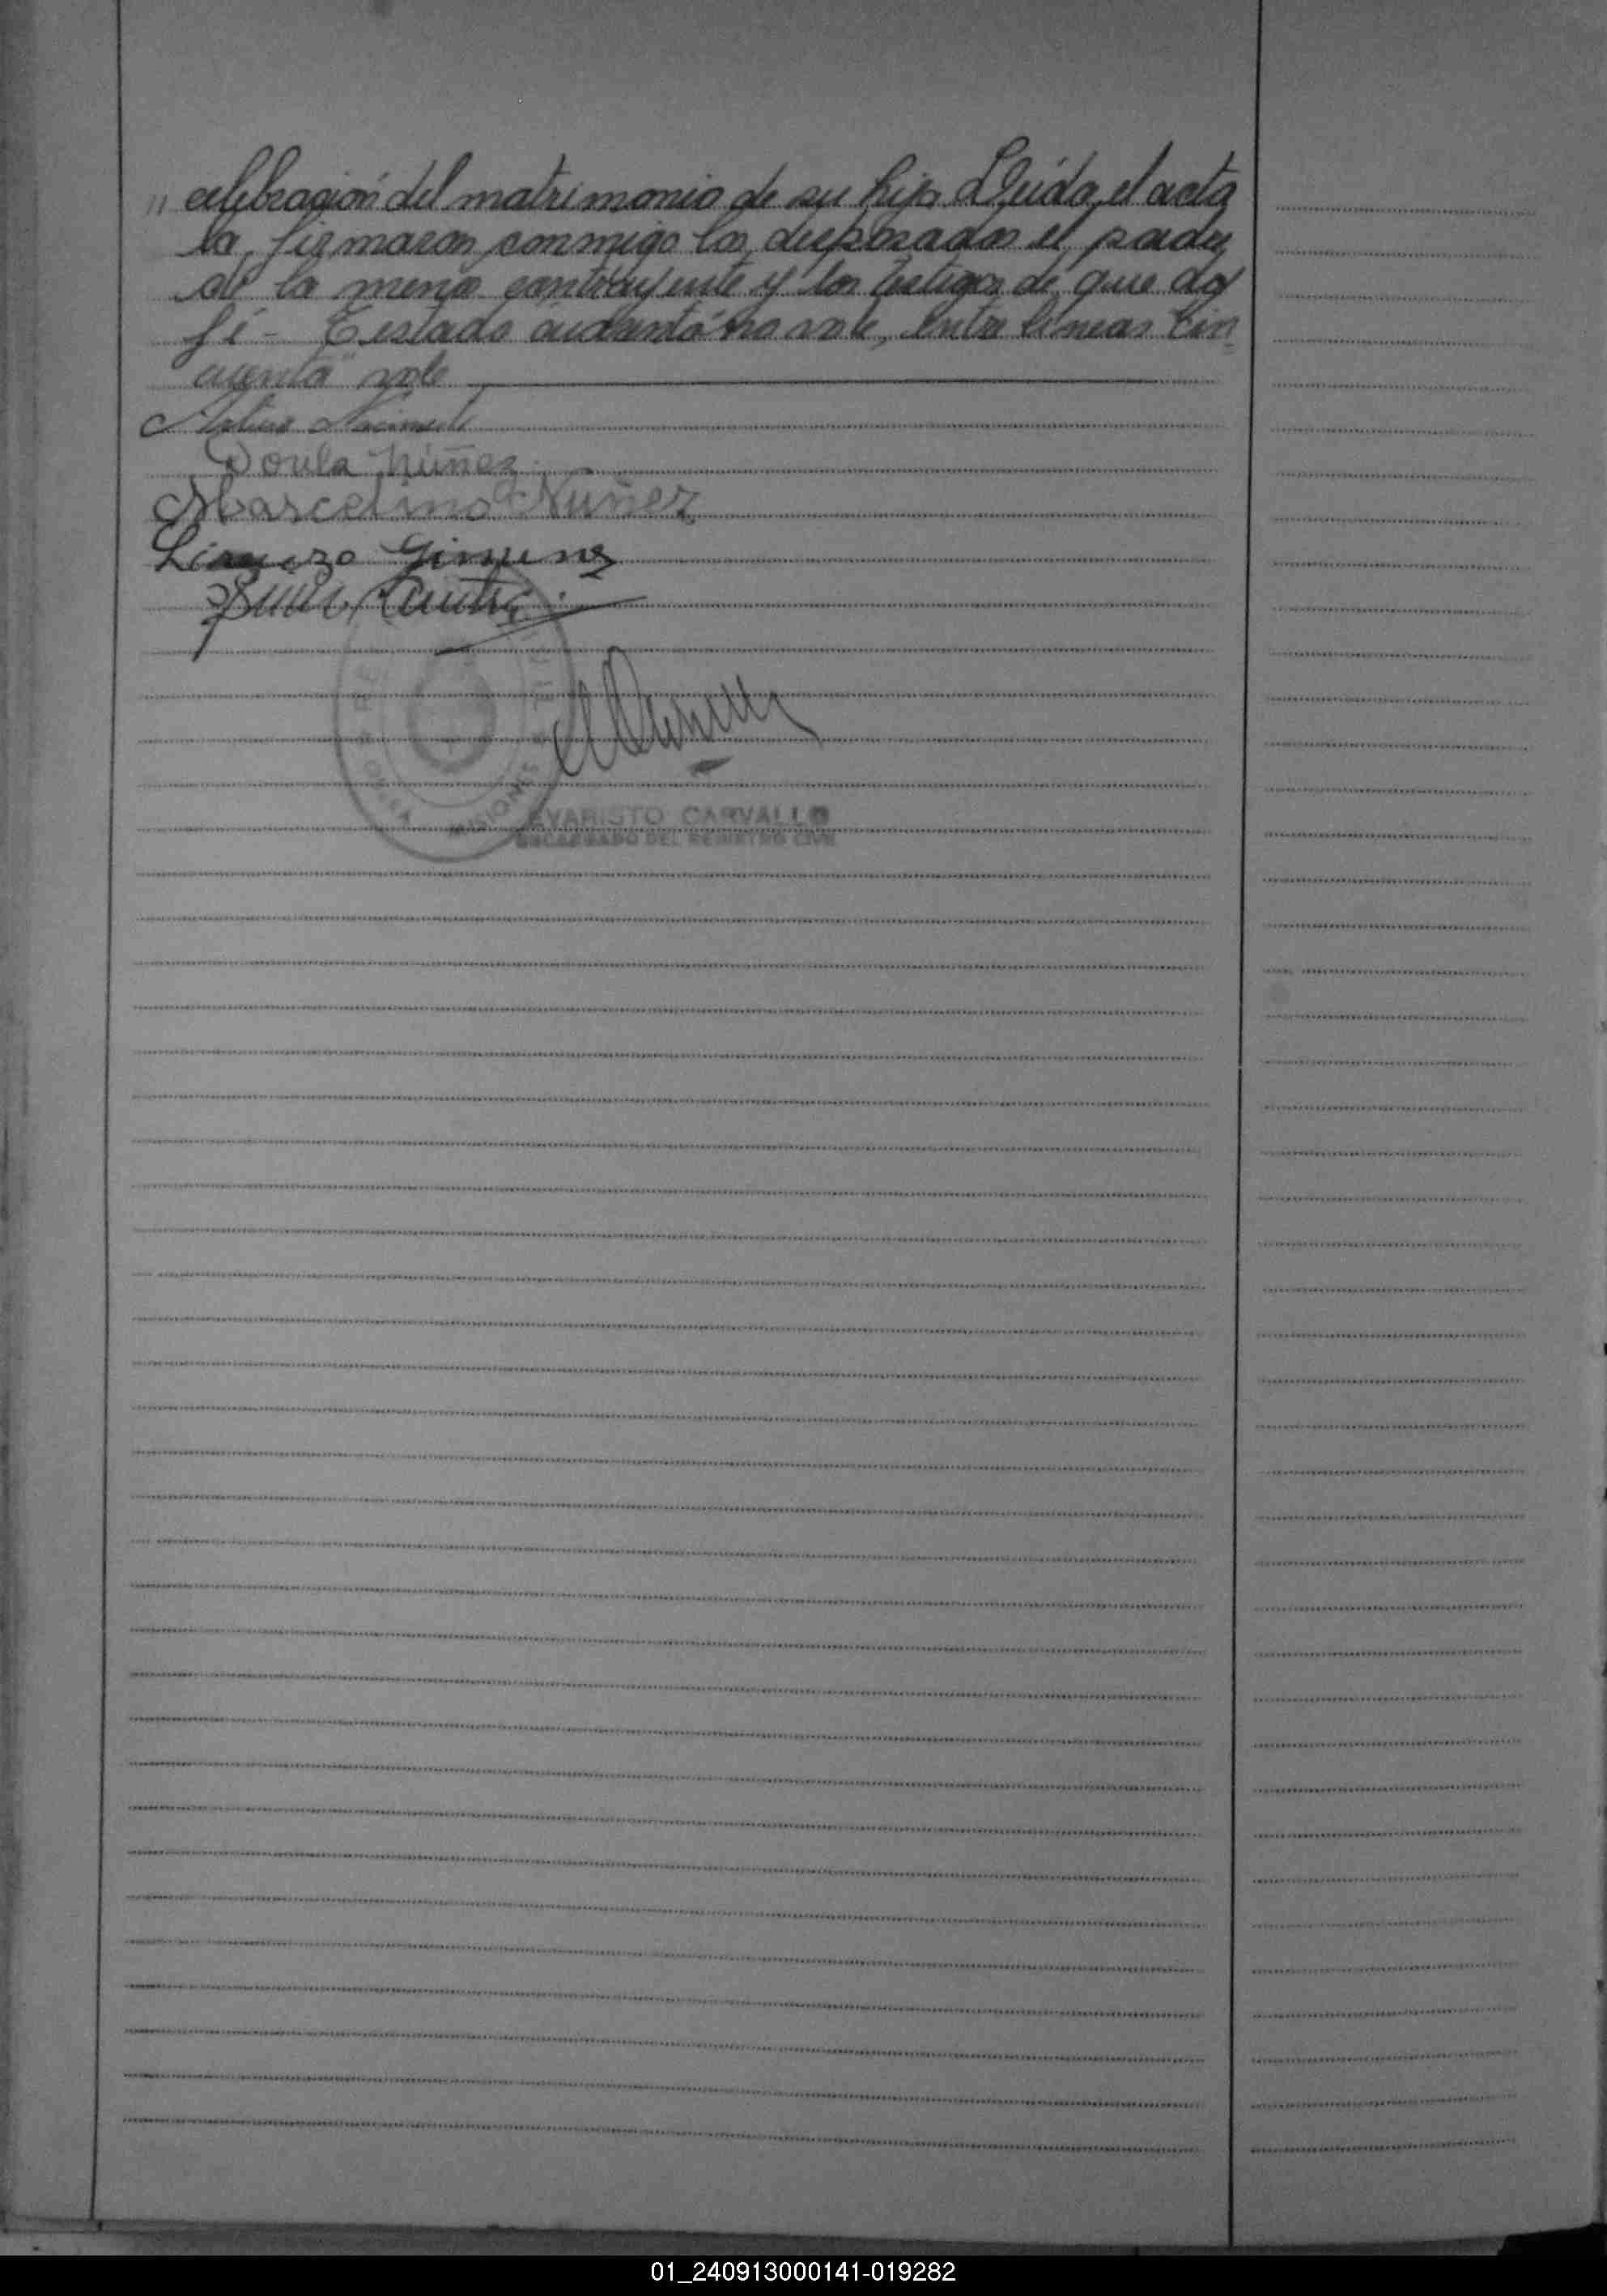 " celebración del matrimonio de su hija Leida el acta
la firmaron conmigo los desposados el padre
de la menor contrayente y los testigos de que doy
fé - Testado no vale, entre líneas "cin
cuenta" vale
Arturo
Doula Núñez
Marcelino Nuñez
Gimenez
MISIONES
EVARISTO CARVALLO
ENCARGADO DEL REGISTRO CIVIL
01_240913000141-019282